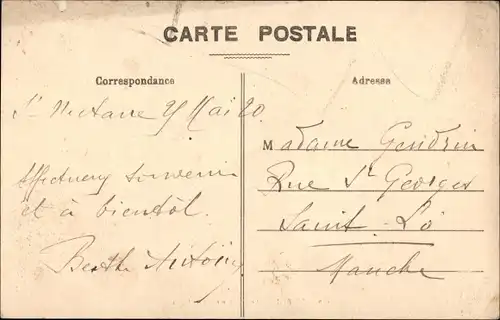 CARTE POSTALE
Correspondance
Adresse
St Nectaire 25 Mai 20.
Affectueux souvenir
et à bientôt.
Berthe Antoine
Madame Gendrin
Rue St Georges
Saint-Lô
Manche